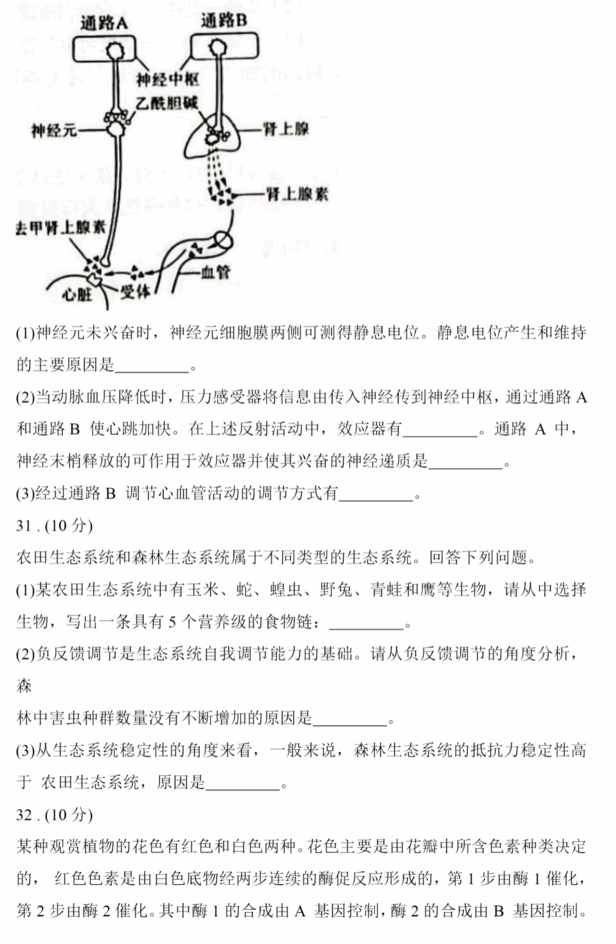 通路A
通路B
神经中枢
乙酰胆碱
神经元
肾上腺
肾上腺素
去甲肾上腺素
血管
心脏
受体
(1)神经元未兴奋时，神经元细胞膜两侧可测得静息电位。静息电位产生和维持
的主要原因是_________。
(2)当动脉血压降低时，压力感受器将信息由传入神经传到神经中枢，通过通路 A
和通路 B 使心跳加快。在上述反射活动中，效应器有_________。通路 A 中，
神经末梢释放的可作用于效应器并使其兴奋的神经递质是_________。
(3)经过通路 B 调节心血管活动的调节方式有_________。
31 . (10 分)
农田生态系统和森林生态系统属于不同类型的生态系统。回答下列问题。
(1)某农田生态系统中有玉米、蛇、蝗虫、野兔、青蛙和鹰等生物，请从中选择
生物，写出一条具有 5 个营养级的食物链：_________。
(2)负反馈调节是生态系统自我调节能力的基础。请从负反馈调节的角度分析，
森
林中害虫种群数量没有不断增加的原因是_________。
(3)从生态系统稳定性的角度来看，一般来说，森林生态系统的抵抗力稳定性高
于 农田生态系统，原因是_________。
32 . (10 分)
某种观赏植物的花色有红色和白色两种。花色主要是由花瓣中所含色素种类决定
的， 红色色素是由白色底物经两步连续的酶促反应形成的，第 1 步由酶 1 催化，
第 2 步由酶 2 催化。其中酶 1 的合成由 A 基因控制，酶 2 的合成由 B 基因控制。